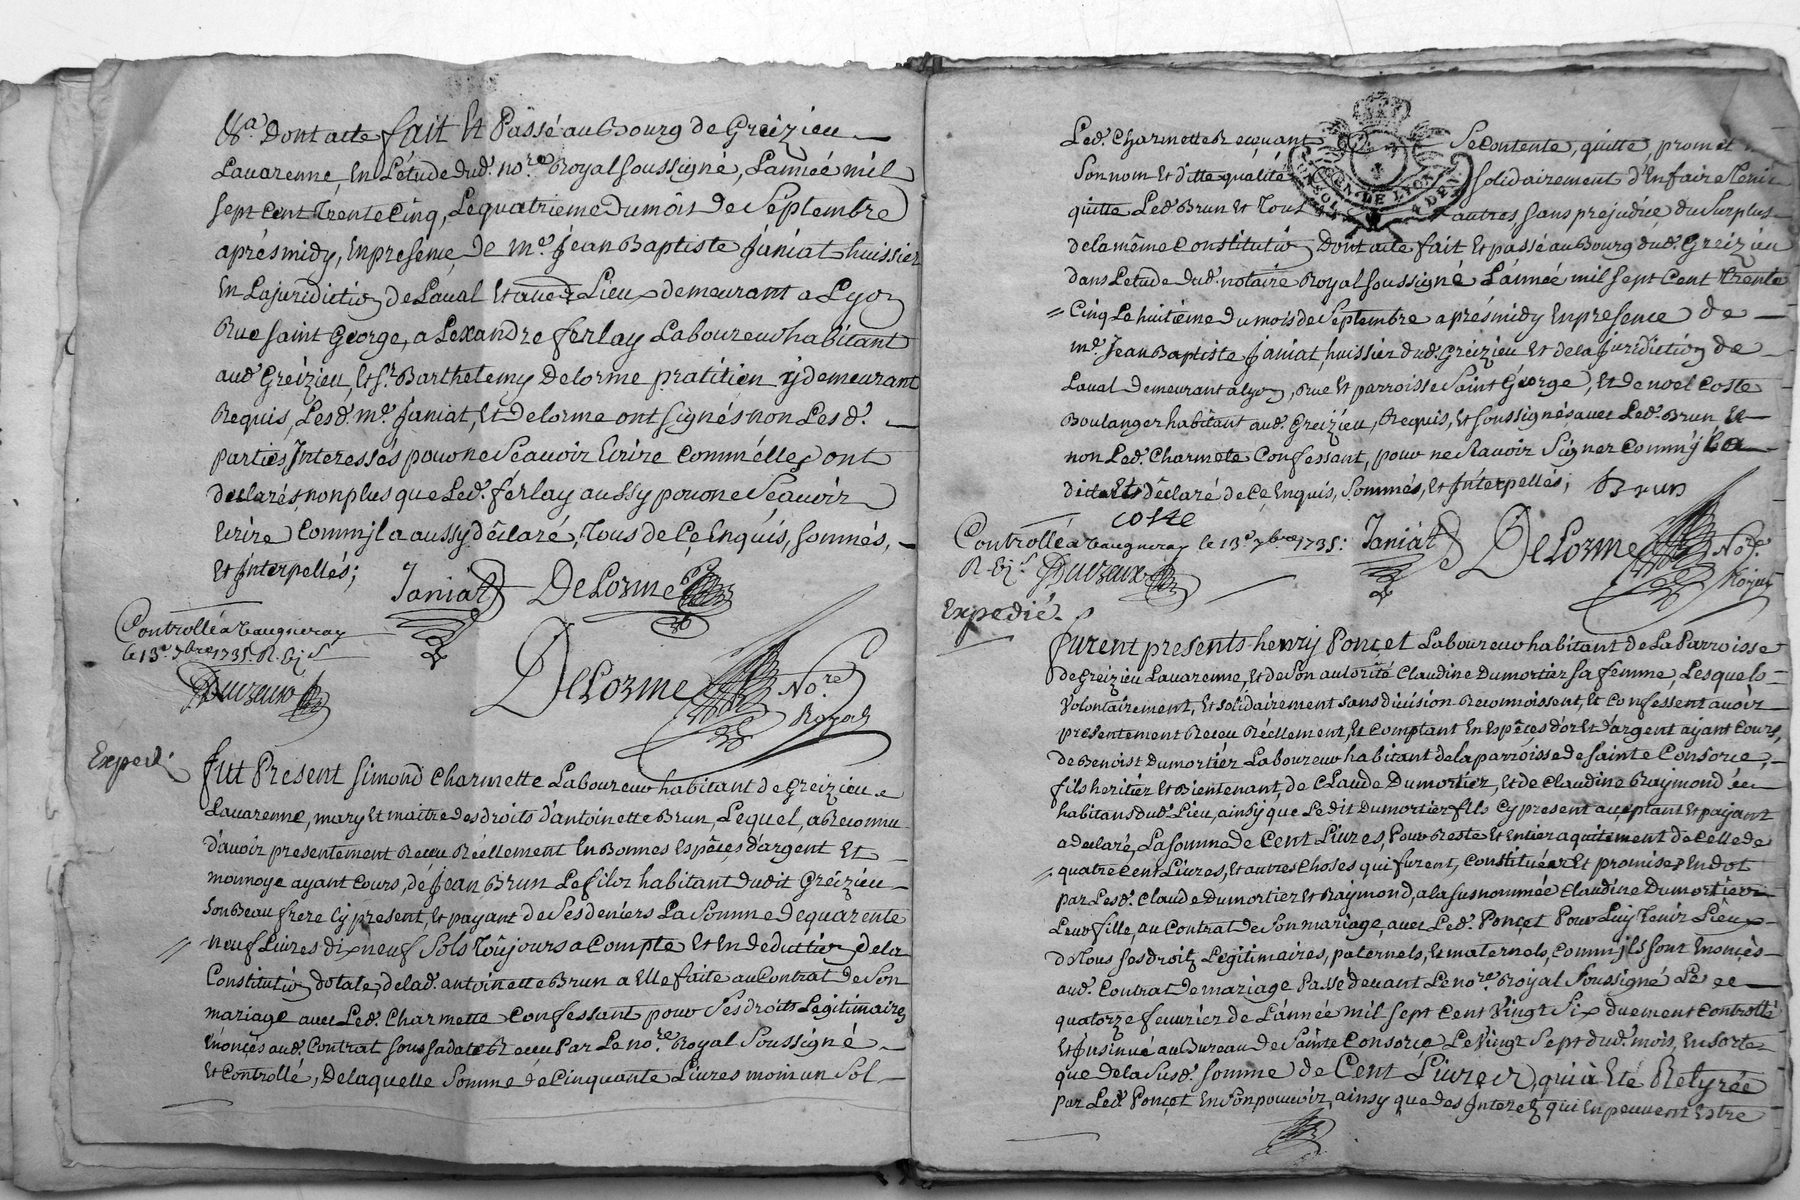 &a. Dont acte fait Et Passé au Bourg de Greizieu
Lavarenne, En L'étude dud. no.re Royal soussigné, L'année mil
sept Cent Trente Cinq, Le quatrieme Du mois de Septembre
aprés midy, En presence, de m.e Jean Baptiste Janiat huissier
En La juridiction de Laval Et Lieux demeurant a Lyon
Rue saint George, a Lexandre ferlay Laboureur habitant
aud. Greizieu, Et s.r Barthelemy Delorme pratitien y demeurant
Requis, Lesd. m.e Janiat, Et Delorme ont signés non Lesd.
parties Interessés pour ne sçavoir Ecrire comm'elles ont
declarés, non plus que Led. ferlay aussy pour ne sçavoir
Ecrire Comm'jl a aussy dêclaré, Tous de Ce Enquis, sommés,
Et Jnterpellés;
Janiat DeLorme
Controllé a Vaugneray
le 13.e 7bre 1735. R.
DeLorme No.re
Royal
Exped.
Fut Present Simond Charmette Laboureur habitant de Greizieu
Lavarenne, mary et maitre des droits d'antoinette Brun, Lequel, a Reconnu
d'avoir presentement Reçeu Réellement En Bonnes Espêces d'argent Et
monnoye ayant Cours, de Jean Brun Le fils habitant dudit Greizieu
son Beau frere Cy present, Et payant de Ses deniers La Somme de quarente
neuf Livres dix neuf sols Toûjours a Compte Et En deduction de la
Constitution dotale, de lad. antoinette Brun a Elle faite au Contrat de Son
mariage avec Led. Charmette Confessant pour Ses droits Legitimaires
Enonçés aud. Contrat sous sa date Reçeu Par Le no.re Royal Soussigné
Et Controllé, De laquelle Somme de Cinquante Livres moin un Sol
Led. Charmette Reçevant Se Contente, quitte, promet
Son nom Et ditte qualité solidairement d'En faire Tenir
quitte Led. Brun Et Tous autres, sans prejudice du Surplus
de la même Constitution Dont acte fait Et passé au Bourg dud. Greizieu
dans L'etude dud. notaire Royal soussigné L'année mil sept Cent trente
Cinq Le huitième du mois de Septembre aprés midy En presence de
m.e Jean Baptiste Janiat, huissier dud. Greizieu Et de la Juridiction de
Laval demeurant a Lyon, Rue Et parroisse Saint George, Et de noel Coste
Boulanger habitant aud. Greizieu, Requis, Et soussignés avec Led. Brun, Et
non Led. Charmete Confessant, pour ne Sçavoir Signer Comm'jl a
dêclaré de Ce Enquis, Sommés, Et Jnterpellés; Brun
coste
Controllé a Vaugneray le 13.e 7bre 1735: Janiat DeLorme No.re
Royal
Expedié.
Furent presents henry Ponçet Laboureur habitant de La Parroisse
de Greizieu Lavarenne, Et de Son autorité Claudine Dumortier sa femme, Lesquels
Volontairement, Et solidairement sans division Reconnoissent, Et Confessent avoir
presentement Reçeu Réellement, Et Comptant En Espêces d'or Et d'argent ayant Cours,
de Benoist Dumortier Laboureur habitant de la parroisse de sainte Consorce,
fils heritier Et Bientenant, de Claude Dumortier, Et de Claudine Raymond
habitans dud. Lieu, ainsy que Le dit Dumortier fils Cy present acceptant Et payant
a declaré, La somme de Cent Livres, Pour Reste Et Entier aquitement de Celle de
quatre Cent Livres, Et autres Choses qui furent, Constituées Et promises En dot
par Lesd. Claude Dumortier et Raymond, a la susnommée Claudine Dumortier
Leur fille, au Contrat de Son mariage, avec Led. Ponçet Pour Luy Tenir Lieu
de Tous ses droits Legitimaires, paternels, Et maternels, Comm'jls sont Enonçés
aud. Contrat de mariage Passé devant Le no.re Royal Soussigné Le
quatorze fevvrier de L'année mil sept Cent Vingt Six duement Controllé
Et Insinué au Bureau de Sainte Consorce Le Vingt Sept dud. mois, En sorte
que de la Susd. somme de Cent Livres, qui a Eté Retyrée
par Led. Ponçet En Son pouvoir, ainsy que des Jnterez qui En peuvent Estre